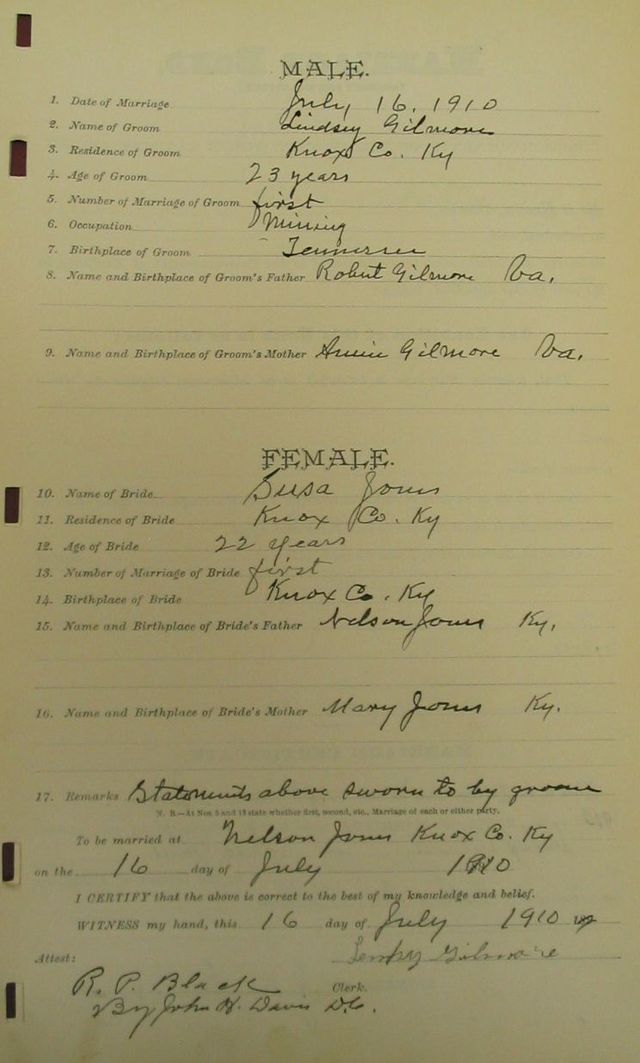 MALE.
1. Date of Marriage July 16, 1910
2. Name of Groom Lindsey Gilmore
3. Residence of Groom Knox Co. Ky
4. Age of Groom 23 years
5. Number of Marriage of Groom first
6. Occupation Mining
7. Birthplace of Groom Tennessee
8. Name and Birthplace of Groom's Father Robert Gilmore Va.
9. Name and Birthplace of Groom's Mother Annie Gilmore Va.
FEMALE.
10. Name of Bride Susa Jones
11. Residence of Bride Knox Co. Ky
12. Age of Bride 22 years
13. Number of Marriage of Bride first
14. Birthplace of Bride Knox Co. Ky
15. Name and Birthplace of Bride's Father Nelson Jones Ky.
16. Name and Birthplace of Bride's Mother Mary Jones Ky.
17. Remarks Statements above sworn to by groom
N. B.—At Nos 5 and 13 state whether first, second, etc., Marriage of each or either party.
To be married at Nelson Jones Knox Co. Ky
on the 16 day of July 1910
I CERTIFY that the above is correct to the best of my knowledge and belief.
WITNESS my hand, this 16 day of July 1910
Gilmore
Attest:
R. P. Black Clerk.
By John H. Davis D.C.